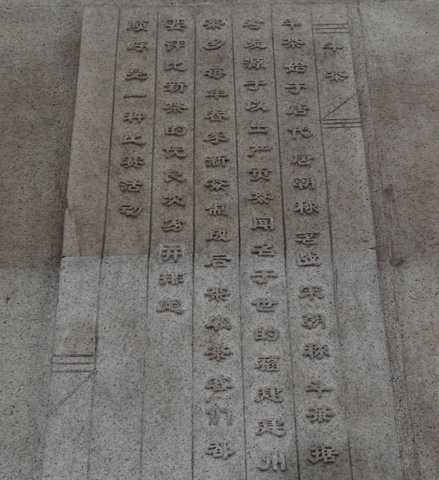 斗茶
斗茶始于唐代唐朝称茗战宋朝称斗茶据
考发源于以出产贡茶闻名于世的福建建州
茶乡每年春季新茶制成后茶农茶客们都
要评比新茶的优良次劣并排定
顺序是一种比赛活动